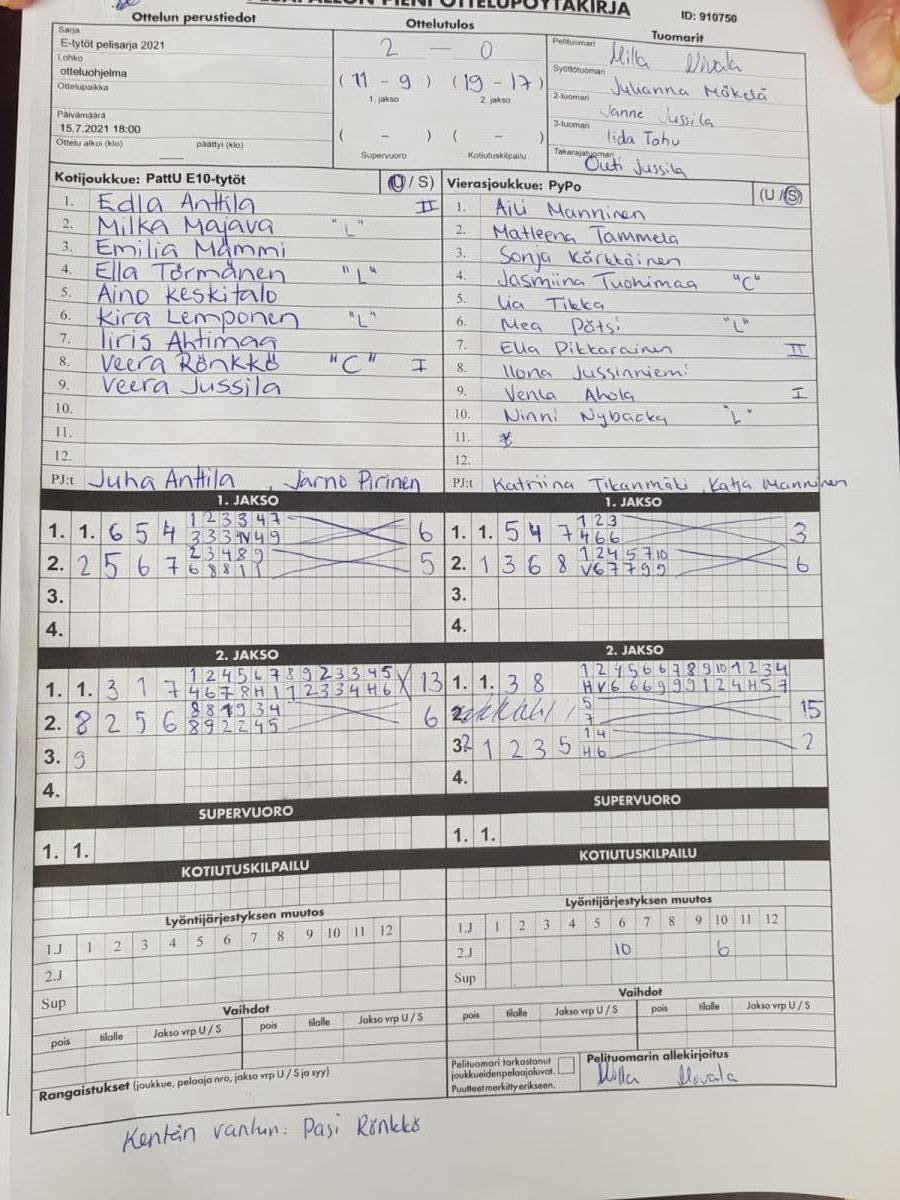 PESÄPALLON PIENI OTTELUPÖYTÄKIRJA
ID: 910750
Ottelun perustiedot
Ottelutulos
Tuomarit
Sarja
E-tytöt pelisarja 2021
Lohko
otteluohjelma
Ottelupaikka
Päivämäärä
15.7.2021 18:00
Ottelu alkoi (klo) päättyi (klo)
2 — 0
(11 - 9) (19 - 17)
1. jakso 2. jakso
( - ) ( - )
Supervuoro Kotiutuskilpailu
Pelituomari Milla Nivala
Syöttötuomari Julianna Mäkelä
2-tuomari Janne Jussila
3-tuomari Iida Tohu
Takarajatuomari Outi Jussila
Kotijoukkue: PattU E10-tytöt (U / S)
1. Edla Anttila II
2. Milka Majava "L"
3. Emilia Mämmi
4. Ella Törmänen "L"
5. Aino Keskitalo
6. Kira Lemponen "L"
7. Iiris Ahtimaa
8. Veera Rönkkö "C" I
9. Veera Jussila
10.
11.
12.
PJ:t Juha Anttila, Jarno Pirinen
Vierasjoukkue: PyPo (U / S)
1. Aili Manninen
2. Matleena Tammela
3. Sonja Kärkkäinen
4. Jasmiina Tuohimaa "C"
5. Lia Tikka
6. Mea Pötsi "L"
7. Ella Pikkarainen II
8. Ilona Jussinniemi
9. Venla Ahola I
10. Ninni Nybacka "L"
11.
12.
PJ:t Katriina Tikanmäki, Katja Manninen
1. JAKSO
1. 1. 6 5 4 1 2 3 3 4 7 6
2. 2 5 6 7 2 3 4 8 9 5
6 8 8 1 1
3.
4.
1. JAKSO
1. 1. 5 4 7 1 2 3 3
4 6 6
2. 1 3 6 8 1 2 4 5 7 10 6
V 6 7 7 9 9
3.
4.
2. JAKSO
1. 1. 3 1 7 1 2 4 5 6 7 8 9 2 3 3 4 5 13
4 6 7 8 H 1 1 2 3 3 4 H 6
2. 8 2 5 6 6
8 9 2 2 4 5
3. 9
4.
2. JAKSO
1. 1. 3 8 1 2 4 5 6 6 7 8 9 10 1 2 3 4
H V 6 6 6 9 9 9 1 2 4 H 5 7
2. 5 15
7
3. 2 1 2 3 5 1 4 2
H 6
4.
SUPERVUORO
1. 1.
SUPERVUORO
1. 1.
KOTIUTUSKILPAILU
KOTIUTUSKILPAILU
Lyöntijärjestyksen muutos
1.J 1 2 3 4 5 6 7 8 9 10 11 12
2.J
Sup
Lyöntijärjestyksen muutos
1.J 1 2 3 4 5 6 7 8 9 10 11 12
2.J 10 6
Sup
Vaihdot
pois tilalle Jakso vrp U / S pois tilalle Jakso vrp U / S
Vaihdot
pois tilalle Jakso vrp U / S pois tilalle Jakso vrp U / S
Rangaistukset (joukkue, pelaaja nro, jakso vrp U / S ja syy)
Pelituomari tarkastanut
joukkueidenpelaajaluvat.
Puutteet merkitty erikseen.
Pelituomarin allekirjoitus
Milla Nivala
Kentän vanhin: Pasi Rönkkö